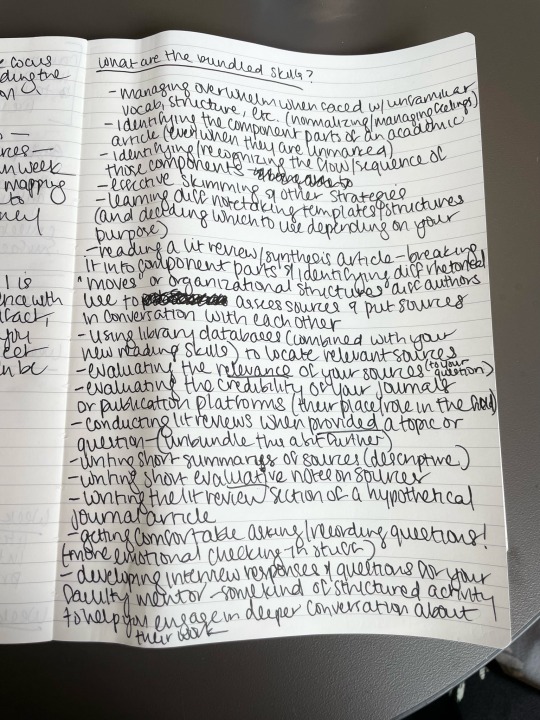 e cocus
ding the
n
—
rces—
n week
mapping
to
ney
l is
ence with
fact,
you
eet
n be
What are the bundled skills?
- managing overwhelm when faced w/ unfamiliar
vocab, structure, etc. (normalizing/managing feelings)
- identifying the component parts of an academic
article (even when they are unmarked)
- identifying/recognizing the flow/sequence of
those components
- effective skimming & other strategies
- learning diff notetaking templates/structures
(and deciding which to use depending on your
purpose)
- reading a lit review/synthesis article - breaking
it into component parts & identifying diff rhetorical
"moves" or organizational structures diff authors
use to assess sources & put sources
in conversation with each other
- using library databases (combined with your
new reading skills) to locate relevant sources
- evaluating the relevance of your sources (to your question)
- evaluating the credibility of your journals
or publication platforms (their place/role in the field)
- conducting lit reviews when provided a topic or
question - (unbundle this a bit further)
- writing short summaries of sources (descriptive)
- writing short evaluative notes on sources
- writing the lit review section of a hypothetical
journal article
- getting comfortable asking/recording questions!
(more emotional checking-in stuff)
- developing interview responses & questions for your
faculty mentor - some kind of structured activity
to help you engage in deeper conversation about
their work